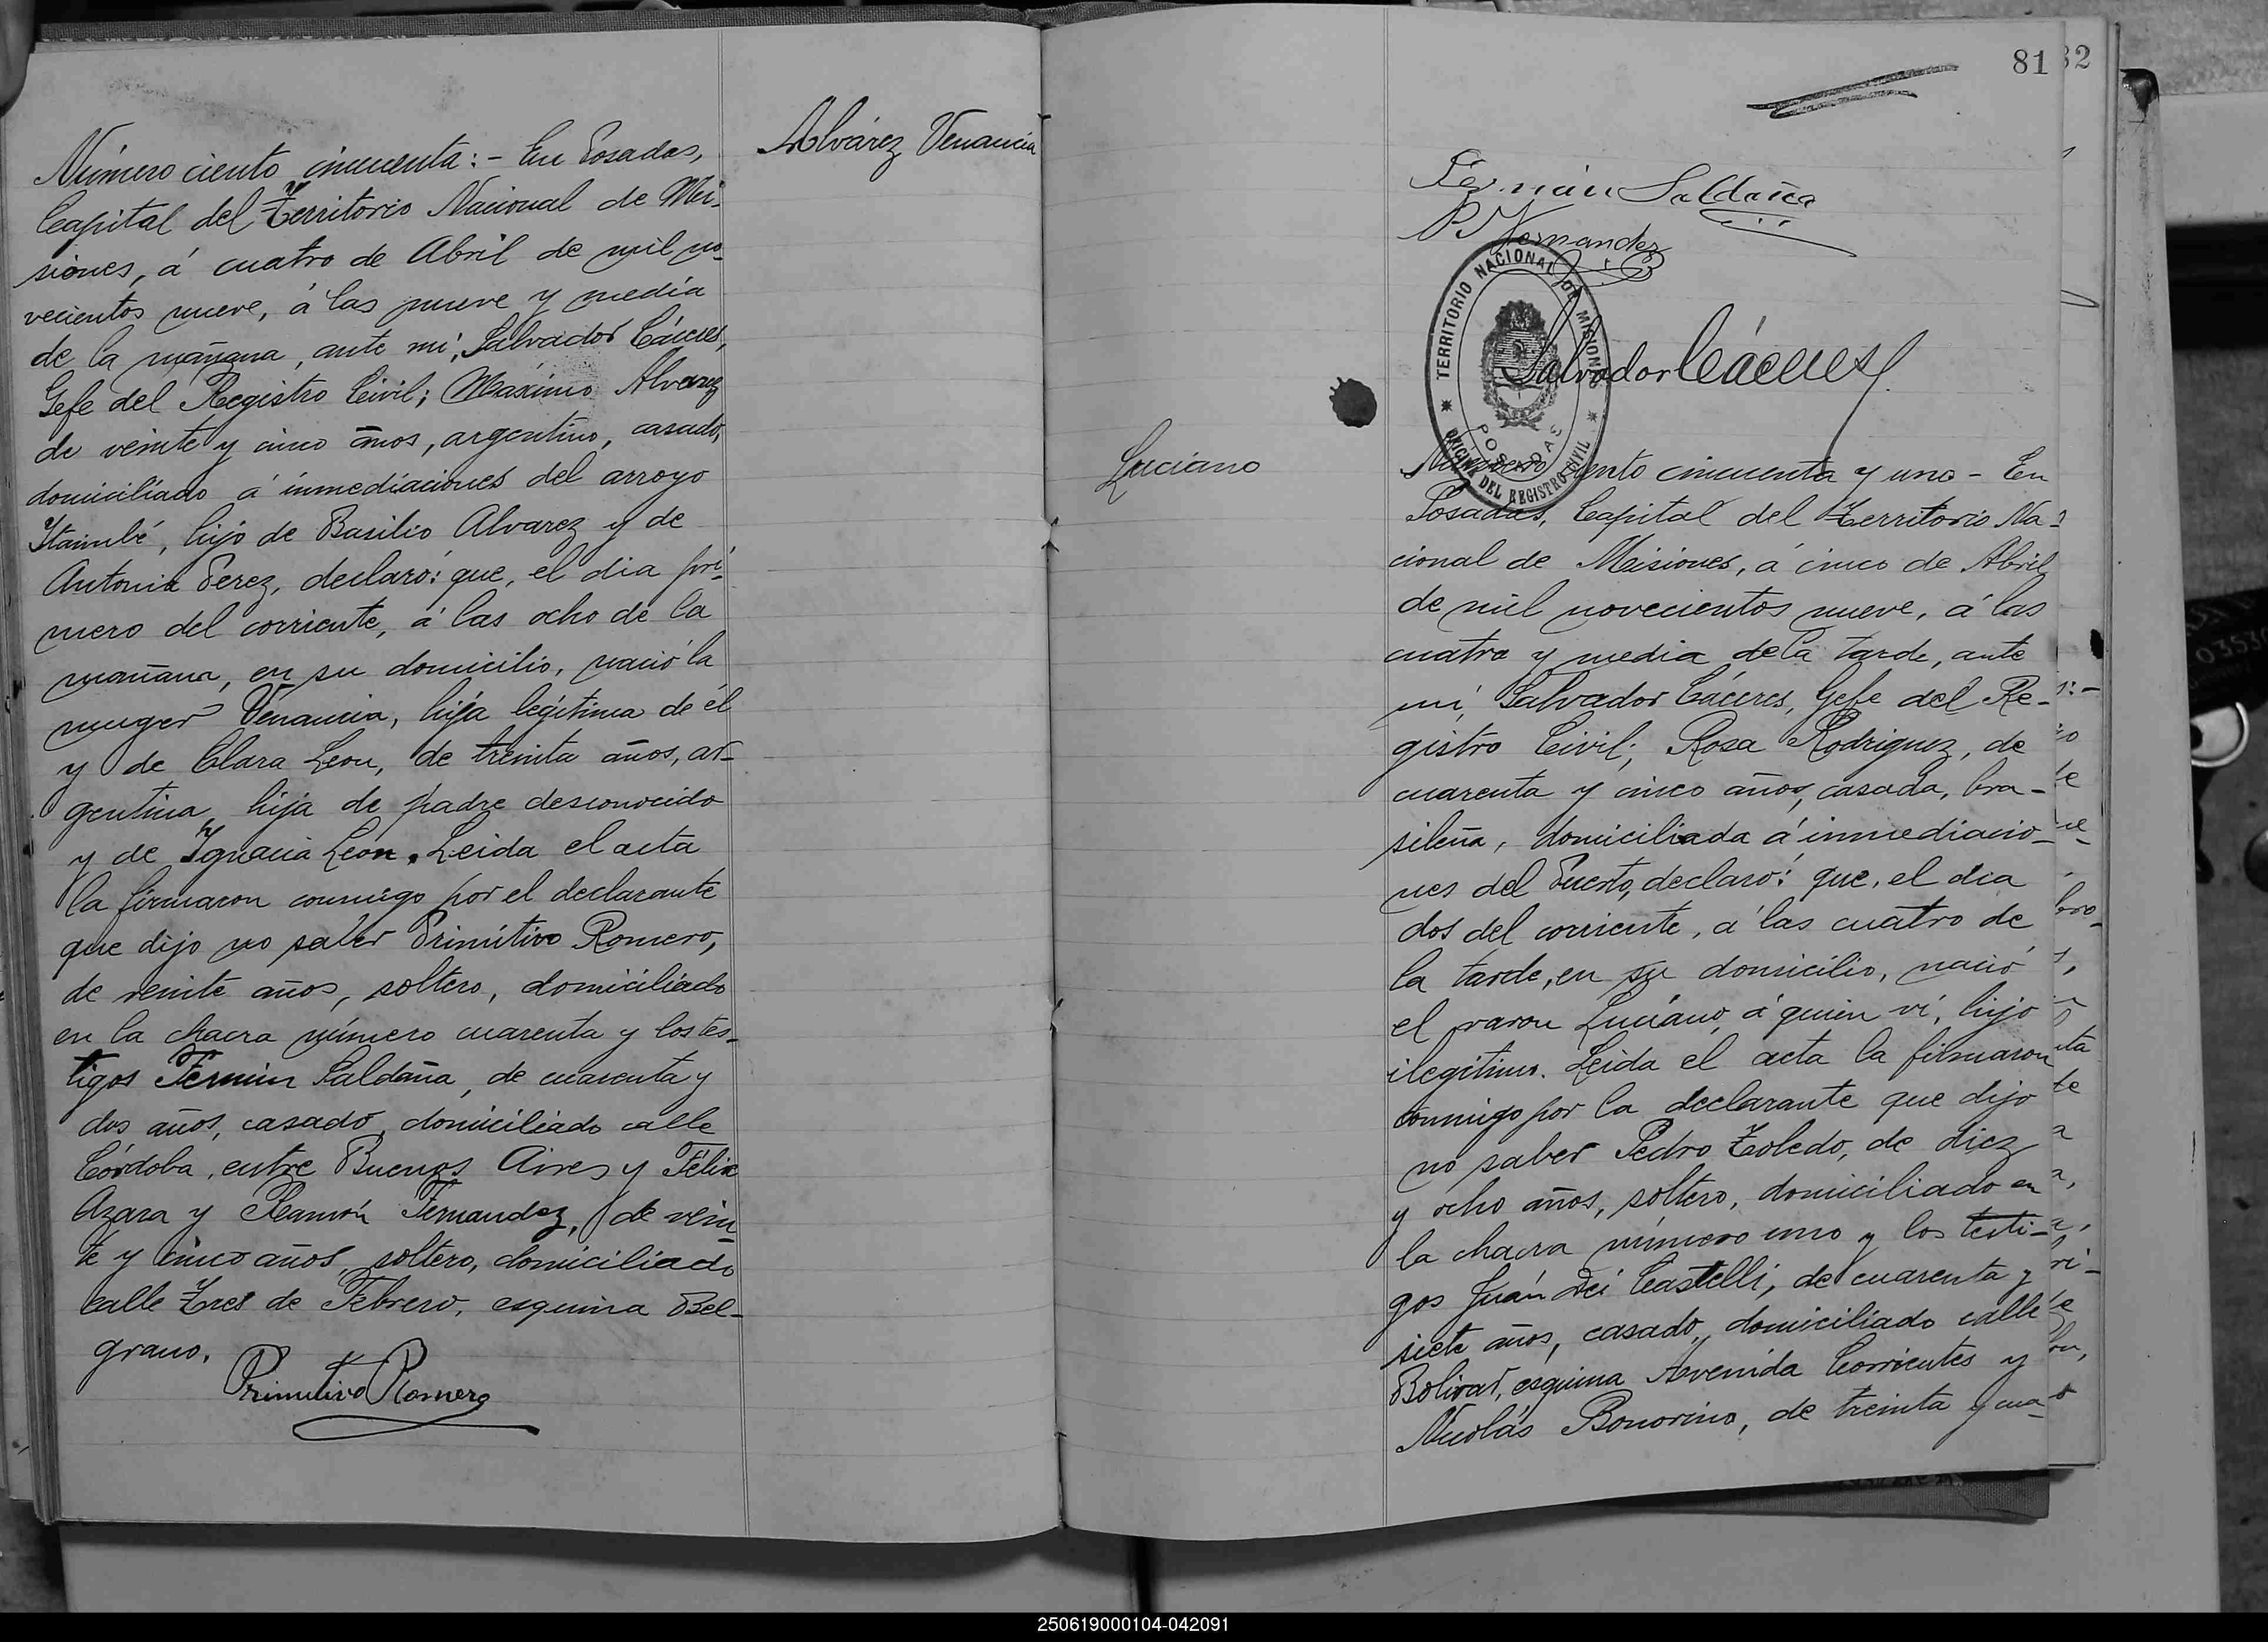 Alvárez Venancia
Número ciento cincuenta:- En Posadas,
Capital del Territorio Nacional de Mi-
siones, á cuatro de Abril de mil no-
vecientos nueve, á las nueve y media
de la mañana, ante mí, Salvador Cáceres,
Gefe del Registro Civil; Maximo Alvarez
de veinte y cinco años, argentino, casado,
domiciliado á inmediaciones del arroyo
Itaimbé, hijo de Basilio Alvarez y de
Antonia Perez, declaró: que, el dia pri-
mero del corriente, á las ocho de la
mañana, en su domicilio, nació la
muger Venancia, hija legítima de él
y de Clara Leon, de treinta años, ar-
gentina, hija de padre desconocido
y de Ignacia Leon. Leida el acta
la firmaron conmigo por el declarante
que dijo no saber Primitivo Romero,
de veinte años, soltero, domiciliado
en la chacra número cuarenta y los tes-
tigos Fermin Saldaña, de cuarenta y
dos años, casado, domiciliado calle
Córdoba, entre Buenos Aires y Félix
Azara y Ramón Fernandez, de vein-
te y cinco años, soltero, domiciliado
calle Tres de Febrero, esquina Bel-
grano.
Primitivo Romero
81
32
Fermin Saldaña
R Fernandez
TERRITORIO NACIONAL DE MISIONES
OFICINA DEL REGISTRO CIVIL
POSADAS
Salvador Cáceres
Luciano
Número ciento cincuenta y uno - En
Posadas, Capital del Territorio Na-
cional de Misiones, á cinco de Abril
de mil novecientos nueve, á las
cuatro y media de la tarde, ante
mí, Salvador Cáceres, Gefe del Re-
gistro Civil; Rosa Rodriguez, de
cuarenta y cinco años, casada, bra-
sileña, domiciliada á inmediacio-
nes del Puerto, declaró: que, el dia
dos del corriente, á las cuatro de
la tarde, en su domicilio, nació
el varon Luciano, á quien ví, hijo
ilegítimo. Leida el acta la firmaron
conmigo por la declarante que dijo
no saber Pedro Toledo, de diez
y ocho años, soltero, domiciliado en
la chacra número uno y los testi-
gos Juán Dei Castelli, de cuarenta y
siete años, casado, domiciliado calle
Bolivar, esquina Avenida Corrientes y
Nicolás Bonorino, de treinta y cua-
250619000104-042091